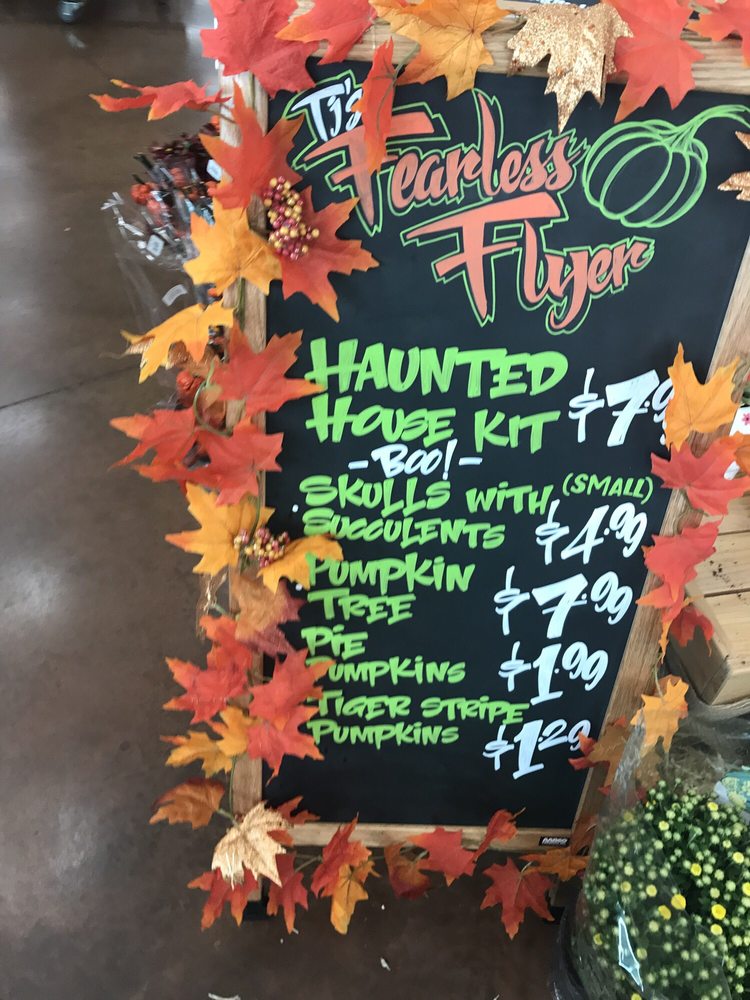 TJ's
Fearless
Flyer
HAUNTED
HOUSE KIT $7.9
-BOO!-
SKULLS WITH (SMALL)
SUCCULENTS $4.99
PUMPKIN
TREE $7.99
PIE
PUMPKINS $1.99
TIGER STRIPE
PUMPKINS $1.29